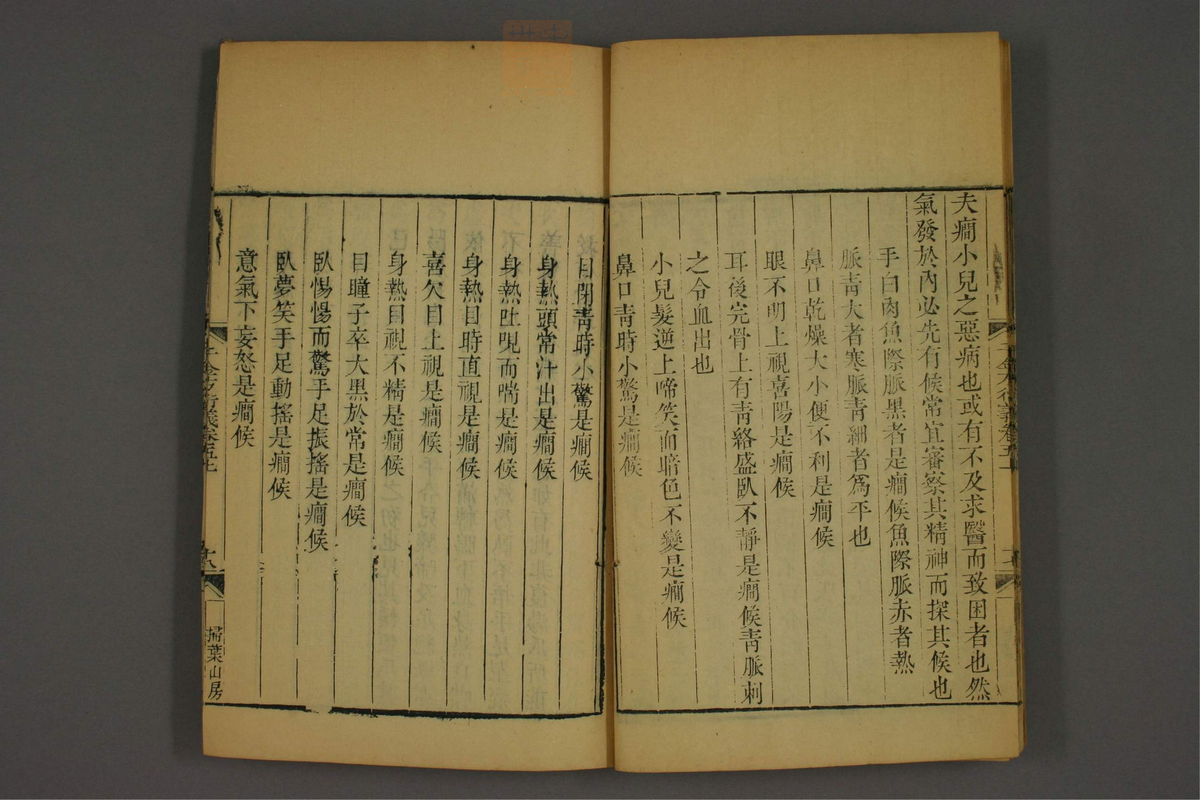 夫癎小兒之惡病也或有不及求醫而致困者也然
氣發於內必先有候常宜審察其精神而探其候也
手白肉魚際脈黑者是癎候魚際脈赤者熱
脈青大者寒脈青細者爲平也
鼻口乾燥大小便不利是癎候
眼不明上視喜陽是癎候
耳後完骨上有青絡盛臥不靜是癎候青脈刺
之令血出也
小兒髮逆上啼笑面暗色不變是癎候
鼻口青時小驚是癎候
目閉青時小驚是癎候
身熱頭常汁出是癎候
身熱吐哯而喘是癎候
身熱目時直視是癎候
喜欠目上視是癎候
身熱目視不精是癎候
目瞳子卒大黑於常是癎候
臥惕惕而驚手足振搖是癎候
臥夢笑手足動搖是癎候
意氣下妄怒是癎候
千金方衍義卷五上
十八
掃葉山房